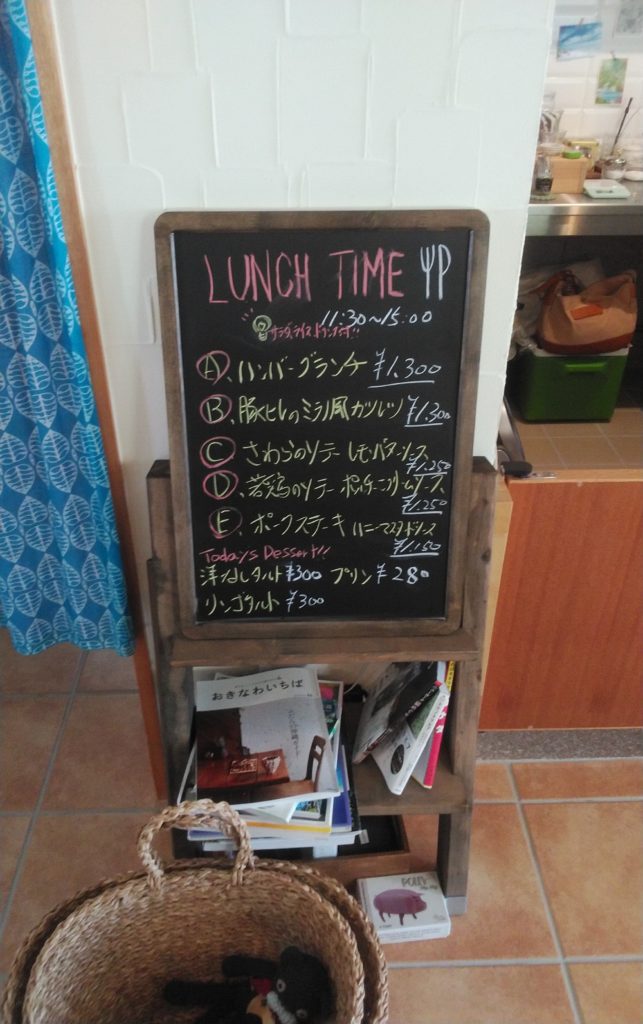 LUNCH TIME
11:30~15:00
サラダ、ライス ドリンク付!!
A、ハンバーグランチ ¥1,300
B、豚ヒレのミラノ風カツレツ ¥1,300
C、さわらのソテー レモンバターソース
¥1,250
D、若鶏のソテー ポルチーニクリームソース
¥1,250
E、ポークステーキ ハニーマスタードソース
¥1,150
Todays Dessert!!
洋なしタルト ¥300 プリン ¥280
リンゴタルト ¥300
おきなわいちば